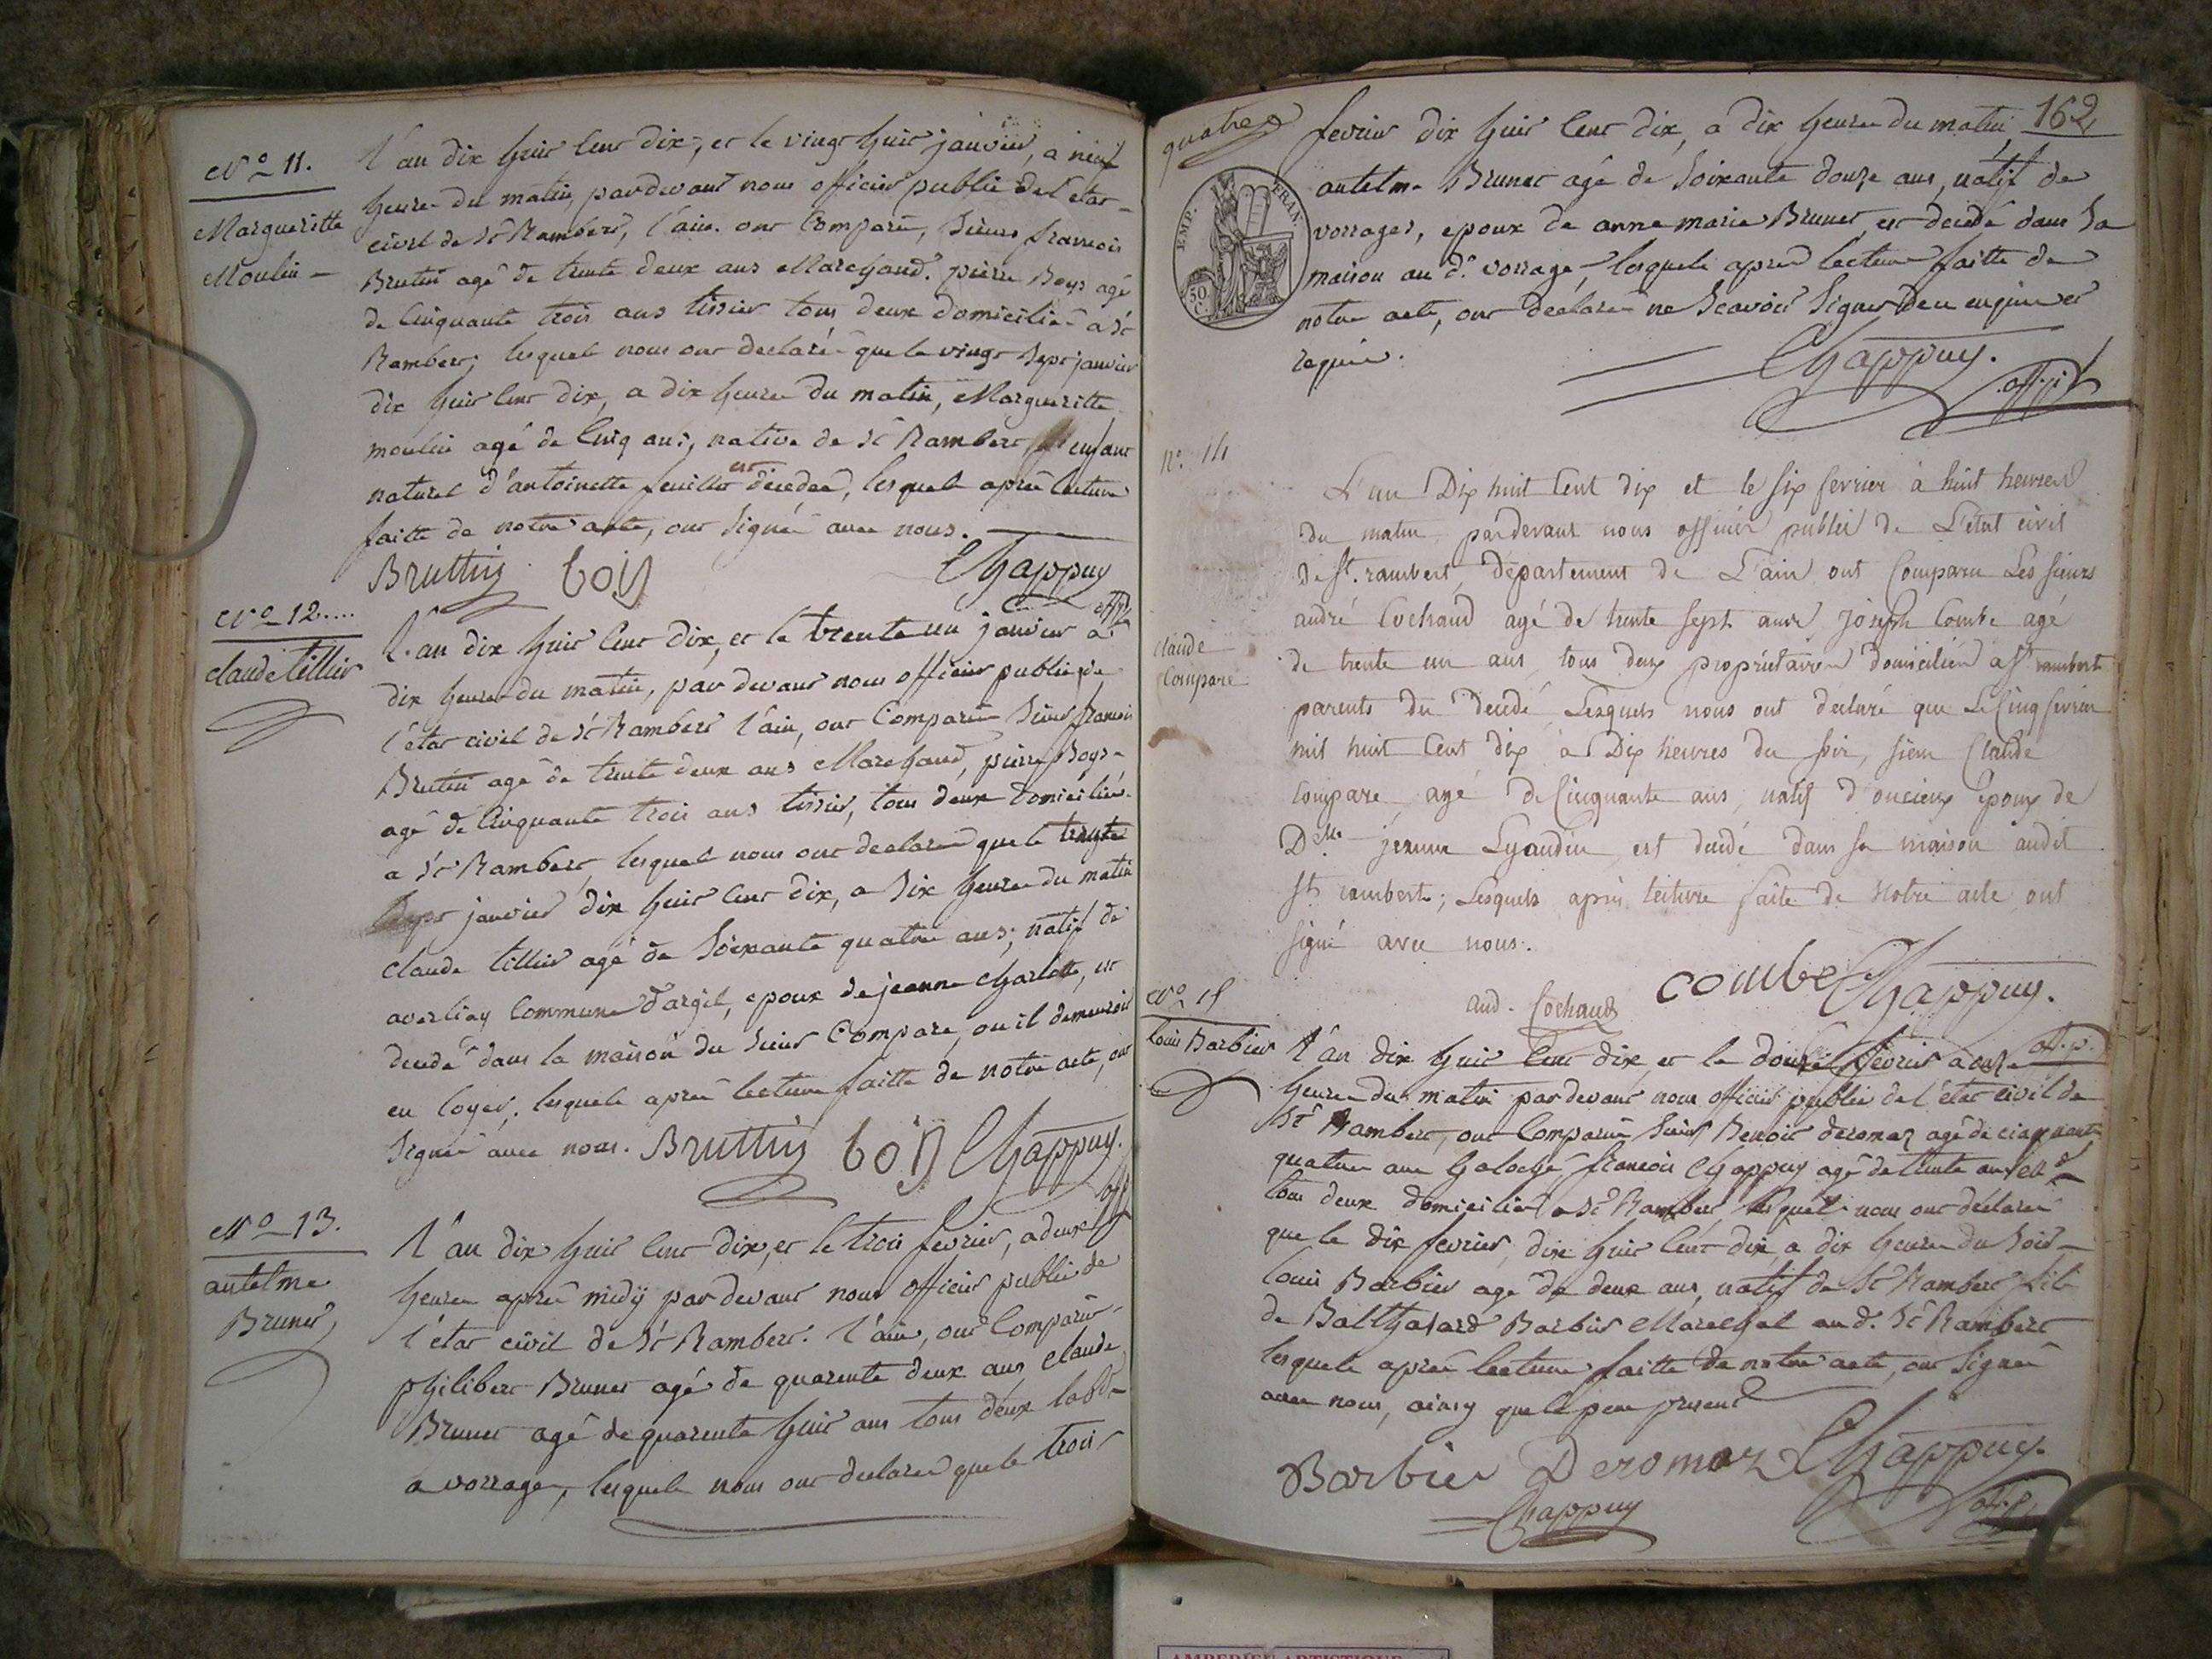 N° 11.
Margueritte
Moulin
L'an dix huit cent dix, et le vingt huit janvier, a neuf
heures du matin, pardevant nous officier public de l'etat
civil de St Rambert, l'ain. ont comparu, Sieurs francois
Brutin agé de trente deux ans Marchand. pierre Boys agé
de Cinquante trois ans tissier tous deux domiciliés a St
Rambert, lesquels nous ont declaré que le vingt sept janvier
dix huit cent dix, a dix heures du matin, Margueritte
moulin agé de Cinq ans, native de St Rambert enfant
naturel d'antoinette feuillet est décédée, lesquels après lecture
faitte de notre acte, ont signé avec nous.
Bruttin boÿ Chappuy
offp
N° 12....
claude tillier
L'an dix huit cent dix, et le trente un janvier a
dix heures du matin, par devant nous officier public de
l'état civil de St Rambert l'ain, ont comparu Sieurs francois
Brutin agé de trente deux ans Marchand, pierre Boys
agé de Cinquante trois ans tissier, tous deux domiciliés
a St Rambert, lesquels nous ont declaré que le trente
janvier dix huit cent dix, a six heures du matin
claude tillier agé de Soixante quatre ans, natif de
averliaz Commune d'argil, epoux de jeanne Charlotte, est
decedé dans la maison du Sieur Compare, ou il demeuroit
en loyer, lesquels après lecture faitte de notre acte, ont
signé avec nous. Bruttin boÿ Chappuy.
off
N° 13.
antelme
Brunet
L'an dix huit cent dix, et le trois fevrier, a deux
heures après midÿ par devant nous officier public de
l'état civil de St Rambert. l'ain, ont Comparu
philibert Brunet agé de quarente deux ans, claude
Brunet agé de quarente huit ans tous deux labr
a vorrages, lesquels nous ont declaré que le trois
quatre
162
fevrier dix huit cent dix, a dix heures du matin
antelme Brunet agé de Soixante douze ans, natif de
vorrages, epoux de anne marie Brunet, est decedé dans Sa
maison au d. vorrage, lesquels après lecture faitte de
notre acte, ont declaré ne Scavoir Signer de ce enquis et
requis.
EMP. FRAN.
50 C.
Chappuy.
off.p
N°. 14
claude
Compare
L'an Dix huit Cent dix et le six fevrier à huit heures
du matin pardevant nous officier public de L'état civil
de St. rambert, département de L'ain ont Comparu Les sieurs
andré Cochand agé de trente sept ans joseph Combe agé
de trente un ans tous deux propriétaires domiciliés a St rambert
parents du décédé, Lesquels nous ont déclaré que Le Cinq fevrier
mil huit Cent dix à Dix heures du soir, sieur Claude
Compare, agé de Cinquante ans, natif d'oncieux époux de
Delle jeanne Lyaudin est decedé dans sa maison audit
St. rambert; Lesquels après lecture faite de Notre acte ont
signé avec nous.
and. Cochand combe Chappuy.
off.p.
N° 15
louis Barbier
L'an dix huit cent dix, et le douze fevrier a onze
heures du matin pardevant nous officier public de l'état civil de
St Rambert, ont Comparu Sieurs Benoit deromaz agé de cinquante
quatre ans Galoché, francois Chappuy agé de trente ans
tous deux domiciliés a St Rambert lesquels nous ont declaré
que le dix fevrier, dix huit cent dix, a dix heures du Soir
louis Barbier agé de deux ans, natif de St Rambert fils
de Balthasard Barbier Marechal au d. St Rambert
lesquels après lecture faitte de notre acte, ont signé
avec nous, ainsy que le pere present
Barbier Deromaz Chappuy.
Chappuy
off.p.